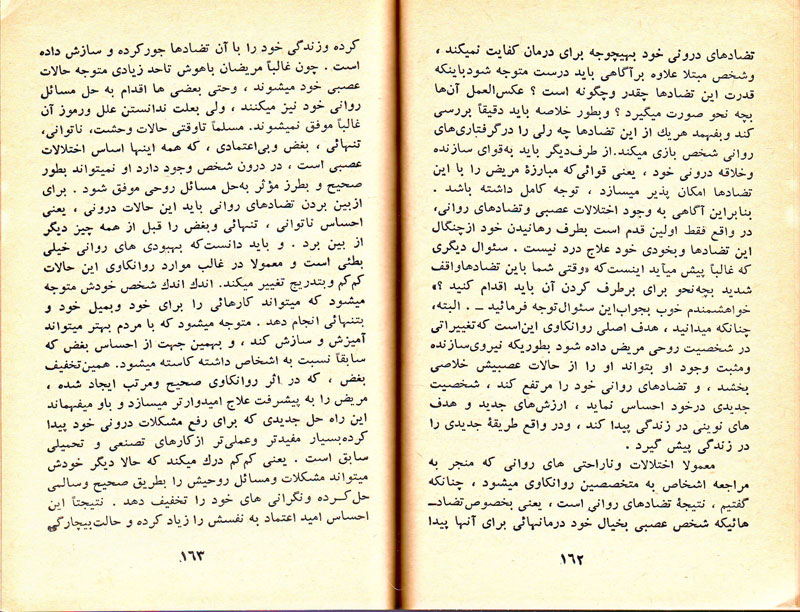 تضادهای درونی خود بهیچوجه برای درمان کفایت نمیکند ،
وشخص مبتلا علاوه برآگاهی باید درست متوجه شودباینکه
قدرت این تضادها چقدر وچگونه است ؟ عکس‌العمل آن‌ها
بچه نحو صورت میگیرد ؟ وبطور خلاصه باید دقیقاً بررسی
کند وبفهمد هریك از این تضادها چه رلی را درگرفتاری‌های
روانی شخص بازی میکند.از طرف‌دیگر باید به‌قوای سازنده
وخلاقه درونی خود ، یعنی قوائی‌که مبارزهٔ مریض را با این
تضادها امکان پذیر میسازد ، توجه کامل داشته باشد .
بنابراین آگاهی به وجود اختلالات عصبی وتضادهای روانی،
در واقع فقط اولین قدم است بطرف رهانیدن خود ازچنگال
این تضادها وبخودی خود علاج درد نیست . سئوال دیگری
که غالباً پیش میآید اینست‌که «وقتی شما باین تضادهاواقف
شدید بچه‌نحو برای برطرف کردن آن باید اقدام کنید ؟»
خواهشمندم خوب بجواب‌این سئوال‌توجه فرمائید ــ . البته،
چنانکه میدانید ، هدف اصلی روانکاوی این‌است که‌تغییراتی
در شخصیت روحی مریض داده شود بطوریکه نیروی‌سازنده
ومثبت وجود او بتواند او را از حالات عصبیش خلاصی
بخشد ، و تضادهای روانی خود را مرتفع کند ، شخصیت
جدیدی درخود احساس نماید ، ارزش‌های جدید و هدف
های نوینی در زندگی پیدا کند ، ودر واقع طریقهٔ جدیدی را
در زندگی پیش گیرد .
معمولا اختلالات وناراحتی های روانی که منجر به
مراجعه اشخاص به متخصصین روانکاوی میشود ، چنانکه
گفتیم ، نتیجهٔ تضادهای روانی است ، یعنی بخصوص‌تضادـ
هائیکه شخص عصبی بخیال خود درمانهائی برای آنها پیدا
۱۶۲
کرده وزندگی خود را با آن تضادها جورکرده و سازش داده
است . چون غالباً مریضان باهوش تاحد زیادی متوجه حالات
عصبی خود میشوند ، وحتی بعضی ها اقدام به حل مسائل
روانی خود نیز میکنند ، ولی بعلت ندانستن علل ورموز آن
غالباً موفق نمیشوند. مسلماً تاوقتی حالات وحشت، ناتوانی،
تنهائی ، بغض وبی‌اعتمادی ، که همه اینها اساس اختلالات
عصبی است ، در درون شخص وجود دارد او نمیتواند بطور
صحیح و بطرز مؤثر به‌حل مسائل روحی موفق شود . برای
ازبین بردن تضادهای روانی باید این حالات درونی ، یعنی
احساس ناتوانی ، تنهائی وبغض را قبل از همه چیز دیگر
از بین برد . و باید دانست‌که بهبودی های روانی خیلی
بطئی است و معمولا در غالب موارد روانکاوی این حالات
کم‌کم وبتدریج تغییر میکند. اندك اندك شخص خودش متوجه
میشود که میتواند کارهائی را برای خود وبمیل خود و
بتنهائی انجام دهد . متوجه میشود که با مردم بهتر میتواند
آمیزش و سازش کند ، و بهمین جهت از احساس بغض که
سابقاً نسبت به اشخاص داشته کاسته میشود. همین‌تخفیف
بغض ، که در اثر روانکاوی صحیح ومرتب ایجاد شده ،
مریض را به پیشرفت علاج امیدوارتر میسازد و باو میفهماند
این راه حل جدیدی که برای رفع مشکلات درونی خود پیدا
کرده‌بسیار مفیدتر وعملی‌تر ازکارهای تصنعی و تحمیلی
سابق است . یعنی کم‌کم درك میکند که حالا دیگر خودش
میتواند مشکلات ومسائل روحیش را بطریق صحیح وسالمی
حل‌کرده ونگرانی های خود را تخفیف دهد . نتیجتاً این
احساس امید اعتماد به نفسش را زیاد کرده و حالت‌بیچارگی
۱۶۳